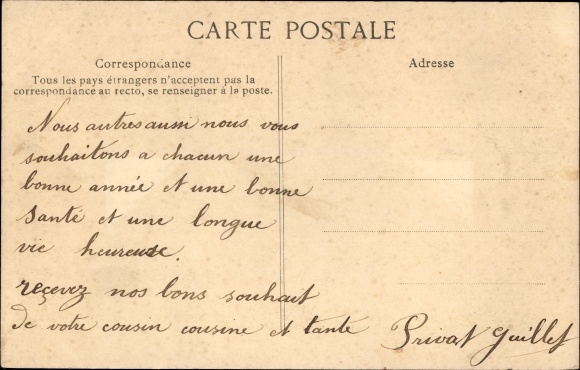 CARTE POSTALE
Correspondance
Tous les pays étrangers n'acceptent pas la
correspondance au recto, se renseigner à la poste.
Adresse
Nous autres aussi nous vous
souhaitons a chacun une
bonne année et une bonne
santé et une longue
vie heureuse.
reçevez nos bons souhait
de votre cousin cousine et tante
Privat Guillet